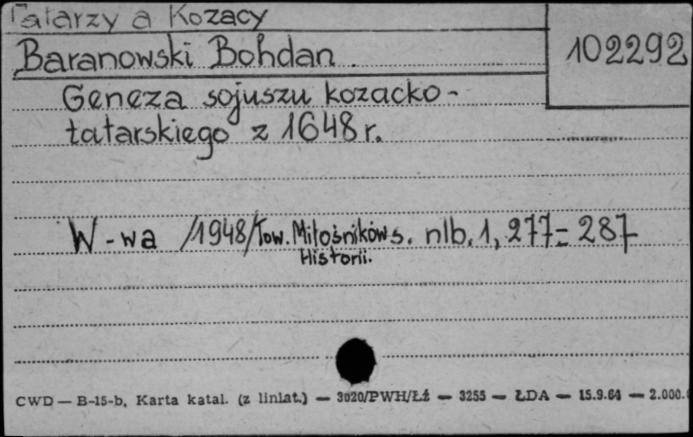 Tatarzy a Kozacy
102292
Baranowski Bohdan.
Geneza sojuszu kozacko-
tatarskiego z 1648 r.
W-wa /1948/ Tow. Miłośników s. nlb. 1, 277-287
Historii.
CWD — B-15-b, Karta katal. (z liniat.) — 3020/PWH/Łź — 3255 — ŁDA — 15.9.64 — 2.000.